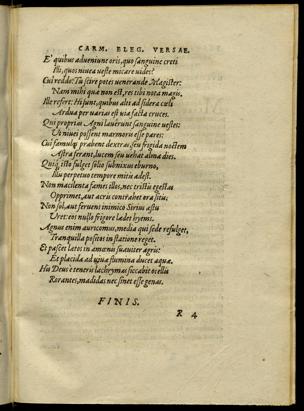 CARM. ELEG. VERSAE.
E' quibus adveniune oris, quo sanguine creti
Illi, quos nivea veste micare vides?
Cui reddo: Tu scire potes venerande Magister:
Nam mihi quae non est, res tibi nota magis.
Ille refert: Hi sunt, quibus alti ad sidera caeli
Ardua per varias est via facta cruces.
Qui proprias Agni laverunt sanguine vestes:
Ut nivei possent marmoris esse pares:
Cui famulas praebent dextras, seu frigida noctem
Astra ferant, lucem seu vehat alma dies.
Quiq, isto fulget solio subnixus eburno,
Illis perpetuo tempore mitis adest.
Non macilenta fames illos, nec tristis egestas
Opprimet, aut acris contrahet ora sitis:
Non sol, aut ferveni inimico Sirius aestu
Uret: eos nullo frigore laedet hyems.
Agnus enim auricomus, media qui sede refulget,
Tranquilla positos in statione reget.
Et pascet laetos in amoenis suaviter agris:
Et placida ad vivae flumina ducet aquae.
His Deus è teneris lachrymas siccabit ocellis
Rorantes, madidas nec sinet esse genas.
FINIS.
R 4